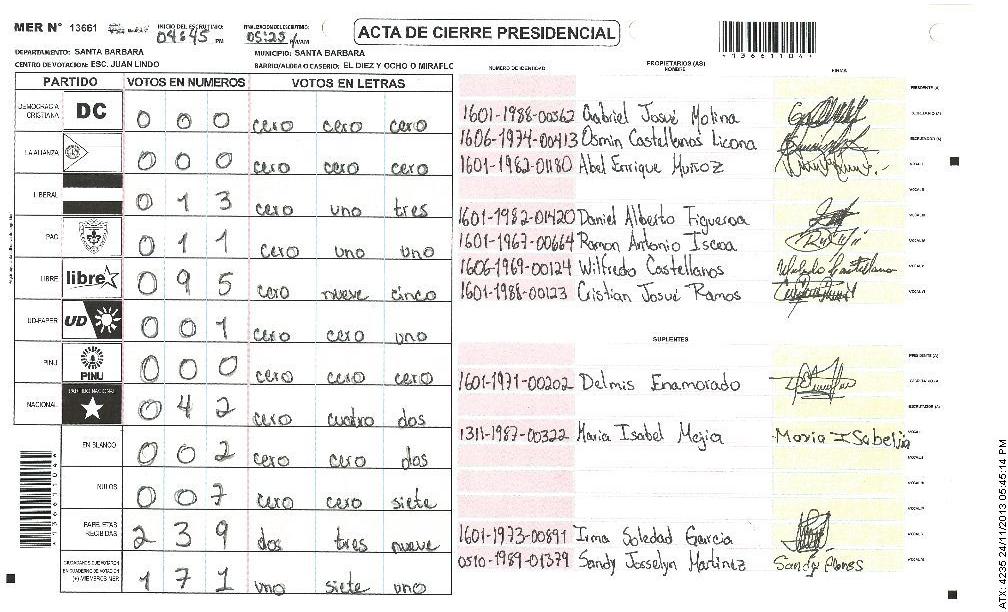 MER N° 13661 INICIO DEL ESCRUTINIO: 04:45 PM FINALIZACION DEL ESCRUTINIO: 05:25
ACTA DE CIERRE PRESIDENCIAL
*1366110 4*
DEPARTAMENTO: SANTA BARBARA MUNICIPIO: SANTA BARBARA
CENTRO DE VOTACION: ESC. JUAN LINDO BARRIO/ALDEA O CASERIO: EL DIEZ Y OCHO O MIRAFLO
PARTIDO VOTOS EN NUMEROS VOTOS EN LETRAS
DEMOCRACIA CRISTIANA DC 0 0 0 cero cero cero
LA ALIANZA 0 0 0 cero cero cero
LIBERAL 0 1 3 cero uno tres
PAC 0 1 1 cero uno uno
LIBRE libre 0 9 5 cero nueve cinco
UD-FAPER UD 0 0 1 cero cero uno
PINU PINU 0 0 0 cero cero cero
NACIONAL PARTIDO NACIONAL 0 4 2 cero cuatro dos
EN BLANCO 0 0 2 cero cero dos
NULOS 0 0 7 cero cero siete
PAPELETAS RECIBIDAS 2 3 9 dos tres nueve
CIUDADANOS QUE VOTARON EN CUADERNO DE VOTACION (+) MIEMBROS MER 1 7 1 uno siete uno
NUMERO DE IDENTIDAD PROPIETARIOS (AS) NOMBRE FIRMA
PRESIDENTE (A)
1601-1988-00562 Gabriel Josué Molina SECRETARIO (A)
1606-1974-00413 Osmin Castellanos Licona ESCRUTADOR (A)
1601-1962-01180 Abel Enrique Muñoz VOCAL I
VOCAL II
1601-1982-01420 Daniel Alberto Figueroa VOCAL III
1601-1967-00664 Ramon Antonio Iscoa VOCAL IV
1606-1969-00124 Wilfredo Castellanos Wilfredo Castellano VOCAL V
1601-1988-00123 Cristian Josué Ramos VOCAL VI
SUPLENTES
PRESIDENTE (A)
1601-1971-00202 Delmis Enamorado SECRETARIO (A)
ESCRUTADOR (A)
1311-1987-00322 Maria Isabel Mejia Maria ISabel VOCAL I
VOCAL II
VOCAL III
VOCAL IV
1601-1973-00891 Irma Soledad Garcia VOCAL V
0510-1989-01379 Sandy Josselyn Martinez Sandy Flores VOCAL VI
ATX: 4235 24/11/2013 05:45:14 PM